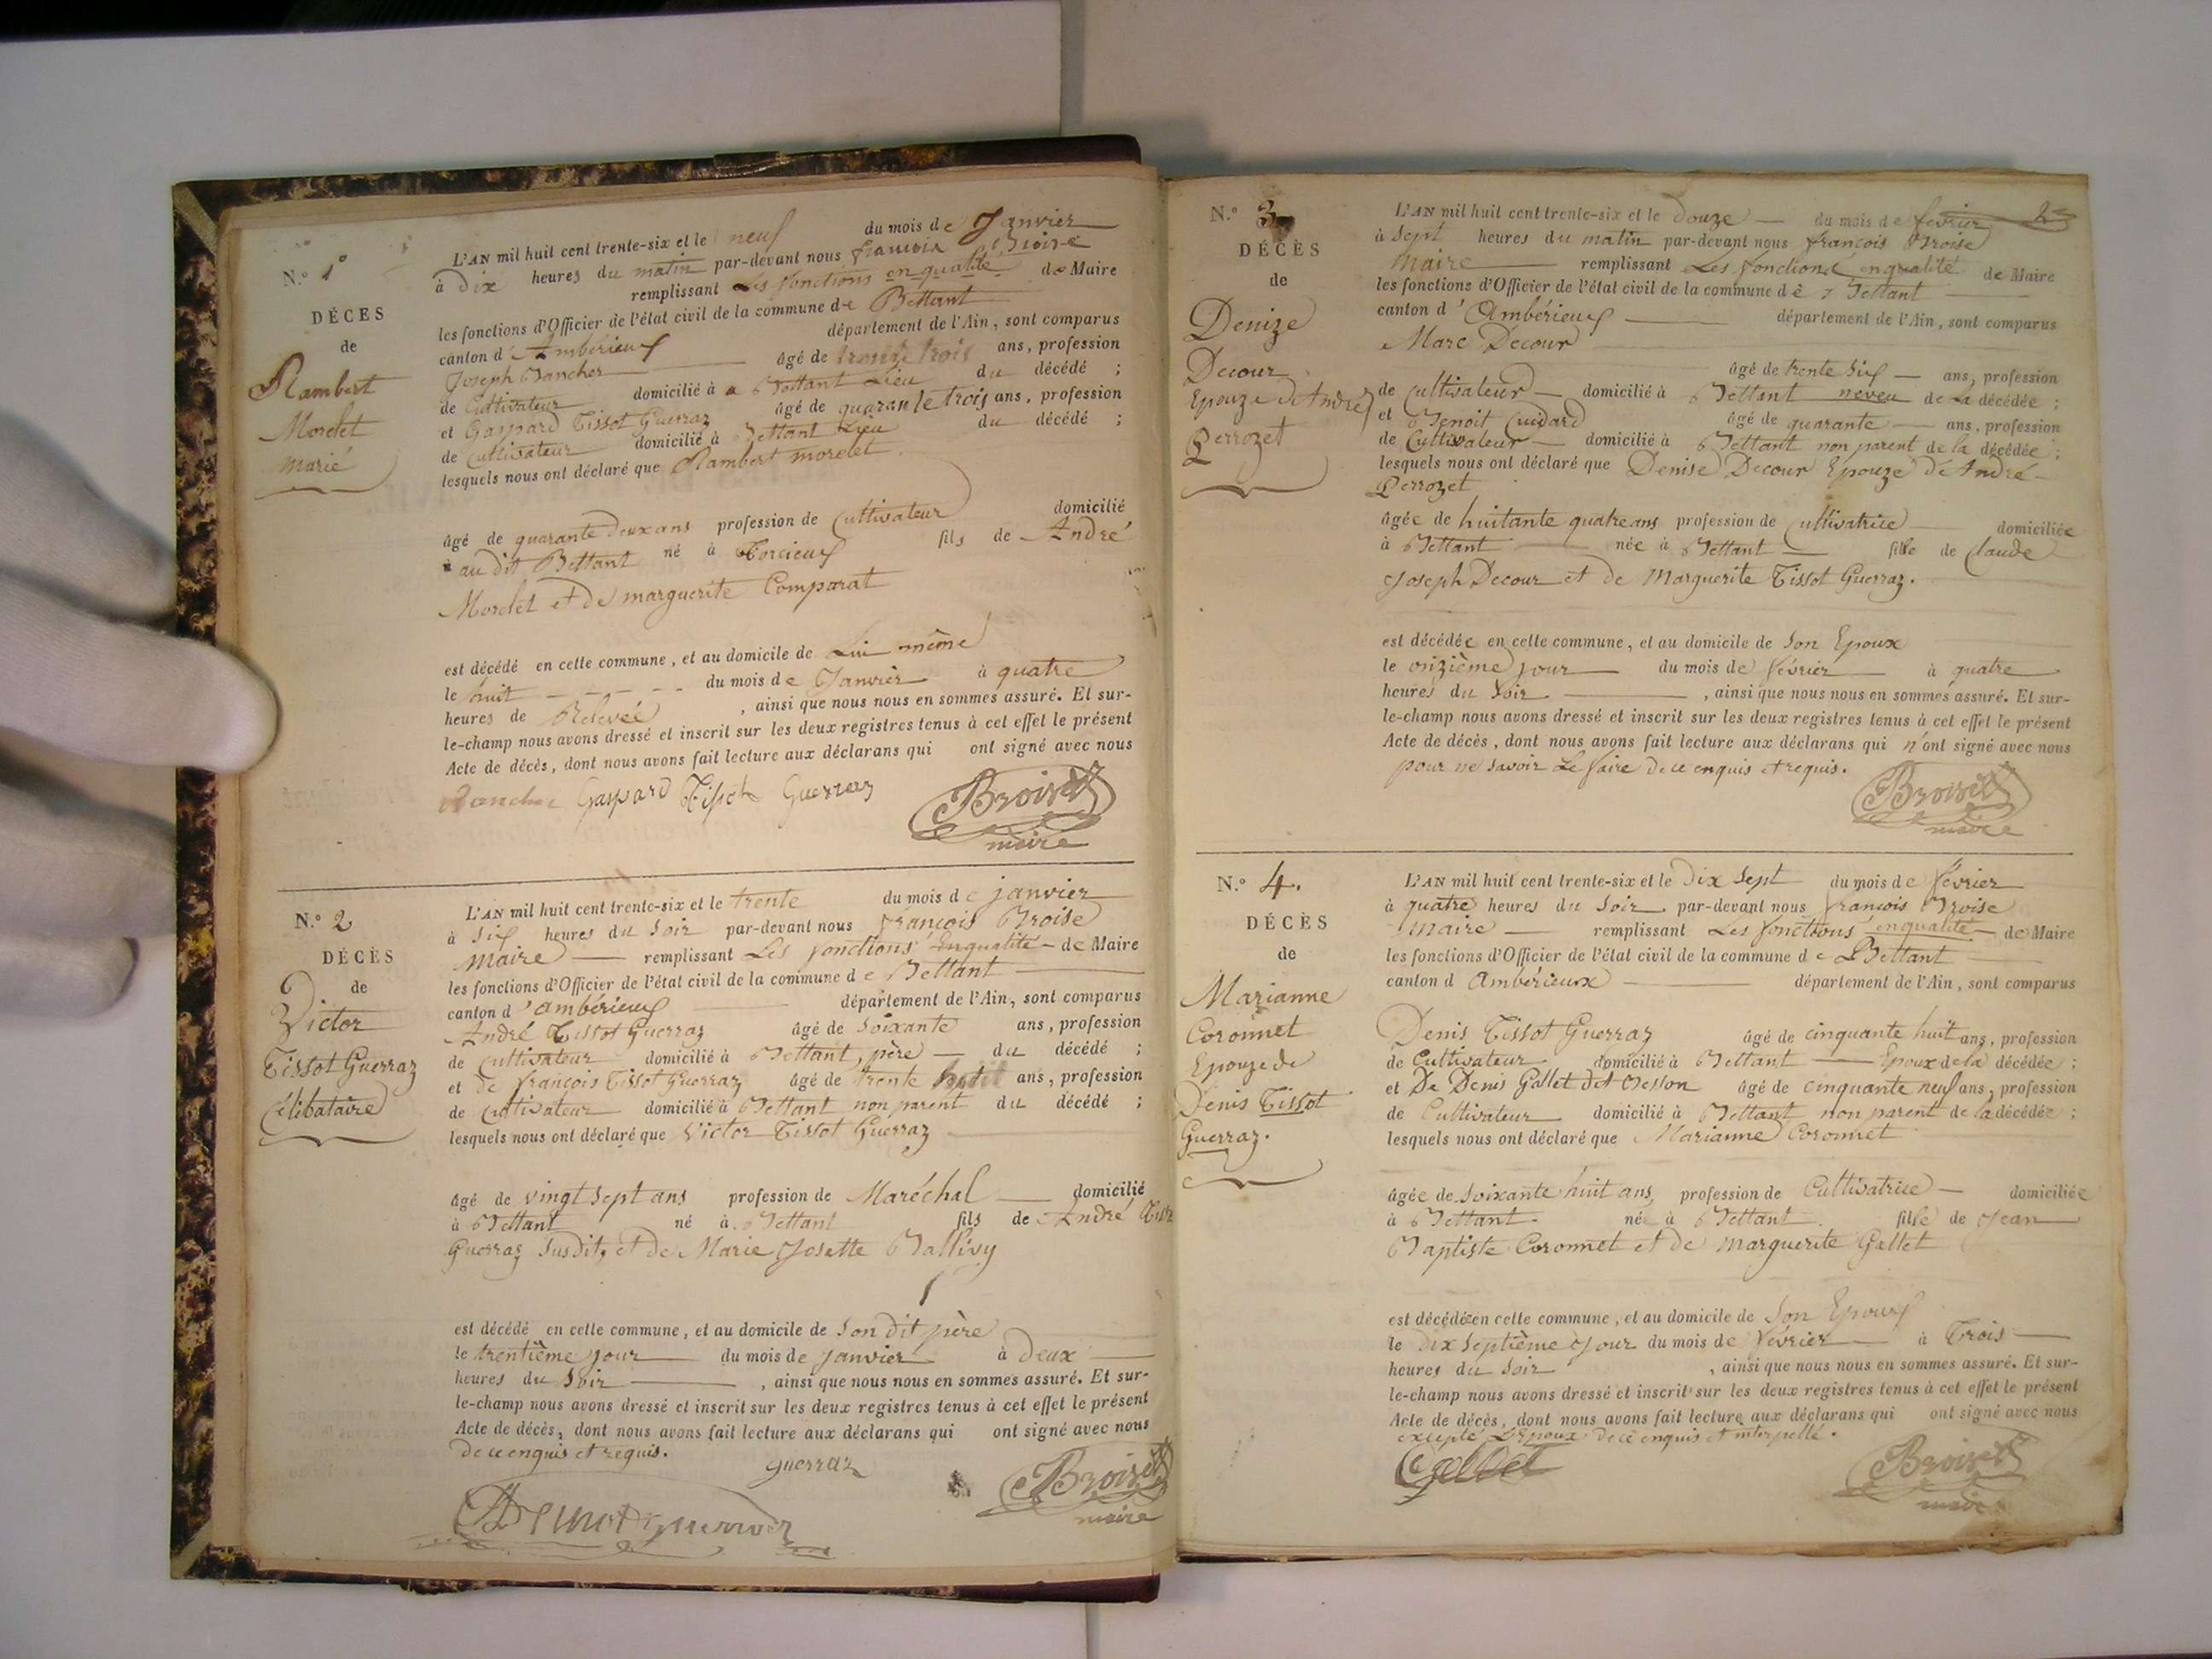 N.° 1°
DÉCES
de
Rambert
Morelet
marié
L'AN mil huit cent trente-six et le neuf du mois de Janvier
à Dix heures du matin par-devant nous françois Broise
remplissant Les fonctions en qualité de Maire
les fonctions d'Officier de l'état civil de la commune de Bettant
canton d'Ambérieux département de l'Ain, sont comparus
Joseph Bancher âgé de trente trois ans, profession
de Cultivateur domicilié à a Bettant Lieu du décédé ;
et Gaspard Tissot Guerraz âgé de quarante trois ans, profession
de Cultivateur domicilié à Bettant Lieu du décédé ;
lesquels nous ont déclaré que Rambert morelet
âgé de quarante deux ans profession de Cultivateur domicilié
à au dit Bettant né à Torcieux fils de André
Morelet et de marguerite Comparat
est décédé en cette commune, et au domicile de Lui même
le huit du mois de Janvier à quatre
heures de Relevée , ainsi que nous nous en sommes assuré. Et sur-
le-champ nous avons dressé et inscrit sur les deux registres tenus à cet effet le présent
Acte de décès, dont nous avons fait lecture aux déclarans qui ont signé avec nous
Bancher Gaspard Tissot Guerraz Broiset
maire
N.° 2
DÉCÈS
de
Victor
Tissot Guerraz
Célibataire
L'AN mil huit cent trente-six et le trente du mois de janvier
à Six heures du Soir par-devant nous françois Broise
Maire remplissant Les fonctions enqualité de Maire
les fonctions d'Officier de l'état civil de la commune de Bettant
canton d'ambérieux département de l'Ain, sont comparus
André Tissot Guerraz âgé de Soixante ans, profession
de Cultivateur domicilié à Bettant, père du décédé ;
et de françois Tissot Guerraz âgé de trente ans, profession
de Cultivateur domicilié à Bettant non parent du décédé ;
lesquels nous ont déclaré que Victor Tissot Guerraz
âgé de vingt Sept ans profession de Maréchal domicilié
à Bettant né à Bettant fils de André
Guerraz Susdit, et de Marie Josette Ballivy
est décédé en cette commune, et au domicile de Son dit père
le trentième jour du mois de janvier à Deux
heures du Soir , ainsi que nous nous en sommes assuré. Et sur-
le-champ nous avons dressé et inscrit sur les deux registres tenus à cet effet le présent
Acte de décès, dont nous avons fait lecture aux déclarans qui ont signé avec nous
de ce enquis et requis.
guerraz Broiset
maire
2
N.° 3
DÉCÈS
de
Denize
Decour
Epouze de André
Perrozet
L'AN mil huit cent trente-six et le Douze du mois de fevrier
à Sept heures du matin par-devant nous françois Broise
Maire remplissant Les fonctions enqualité de Maire
les fonctions d'Officier de l'état civil de la commune de Bettant
canton d'Ambérieux département de l'Ain, sont comparus
Marc Decour
âgé de trente Six ans, profession
de Cultivateur domicilié à Bettant neveu de La décédée ;
et Benoit Cuidard âgé de quarante ans, profession
de Cultivateur domicilié à Bettant non parent de la décédée ;
lesquels nous ont déclaré que Denise Decour Epouze de André
Perrozet
âgée de huitante quatre ans profession de Cultivatrice domiciliée
à Bettant née à Bettant fille de Claude
Joseph Decour et de Marguerite Tissot Guerraz.
est décédée en cette commune, et au domicile de Son Epoux
le onzième jour du mois de février à quatre
heures du Soir , ainsi que nous nous en sommes assuré. Et sur-
le-champ nous avons dressé et inscrit sur les deux registres tenus à cet effet le présent
Acte de décès, dont nous avons fait lecture aux déclarans qui n'ont signé avec nous
pour ne Savoir Le faire de ce enquis et requis.
Broiset
maire
N.° 4.
DÉCÈS
de
Marianne
Coronnet
Epouze de
Denis Tissot
Guerraz.
L'AN mil huit cent trente-six et le Dix Sept du mois de février
à quatre heures du Soir par-devant nous françois Broise
Maire remplissant Les fonctions enqualité de Maire
les fonctions d'Officier de l'état civil de la commune de Bettant
canton d Ambérieux département de l'Ain, sont comparus
Denis Tissot Guerraz âgé de cinquante huit ans, profession
de Cultivateur domicilié à Bettant Epoux de la décédée ;
et De Denis Gallet dit âgé de cinquante neuf ans, profession
de Cultivateur domicilié à Bettant non parent de la décédée ;
lesquels nous ont déclaré que Marianne Coronnet
âgée de Soixante huit ans, profession de Cultivatrice domiciliée
à Bettant. née à Bettant. fille de Jean
Baptiste Coronnet et de marguerite Gallet
est décédée en cette commune, et au domicile de Son Epoux
le Dix Septième Jour du mois de février à Trois
heures du Soir , ainsi que nous nous en sommes assuré. Et sur-
le-champ nous avons dressé et inscrit sur les deux registres tenus à cet effet le présent
Acte de décès, dont nous avons fait lecture aux déclarans qui ont signé avec nous
excepté L'Epoux de ce enquis et interpellé.
Gallet Broiset
maire